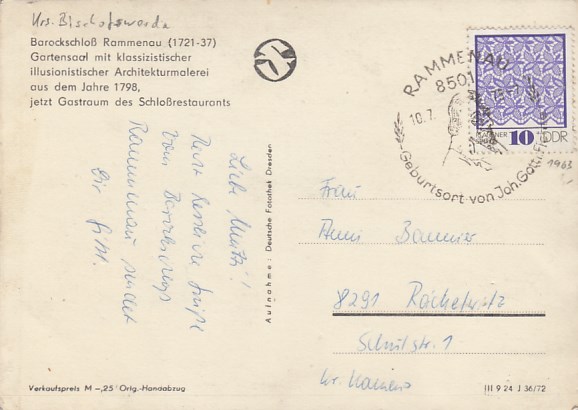 Krs. Bischofswerda
Barockschloß Rammenau (1721-37)
Gartensaal mit klassizistischer
illusionistischer Architekturmalerei
aus dem Jahre 1798,
jetzt Gastraum des Schloßrestaurants
RAMMENAU
8501
10.7.
Geburtsort von Joh. Gottl.
10 DDR
1963
Liebe Mutti!
Recht herzliche Grüße
vom Barockschloß
Rammenau sendet
Dir
Aufnahme: Deutsche Fotothek Dresden
Frau
Anni
8291
Schulstr. 1
Kr. Kamenz
Verkaufspreis M –,25 Orig.-Handabzug
III 9 24 J 36/72